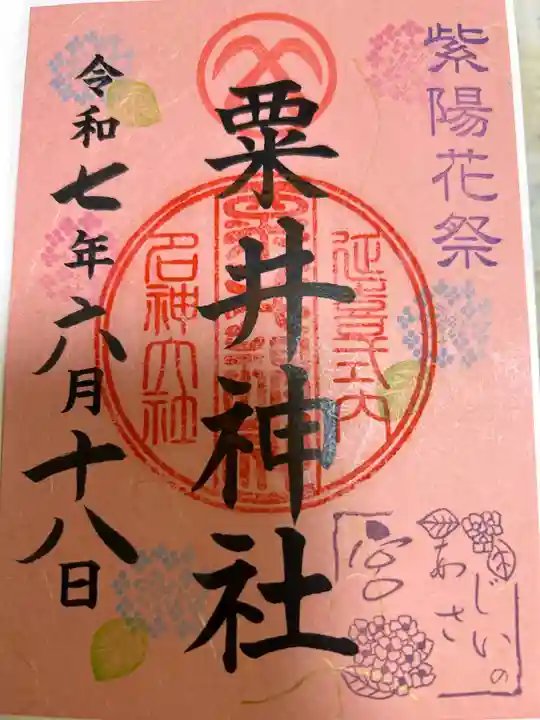 紫陽花祭
粟井神社
令和七年六月十八日
延喜式内
名神大社
あじさいの宮